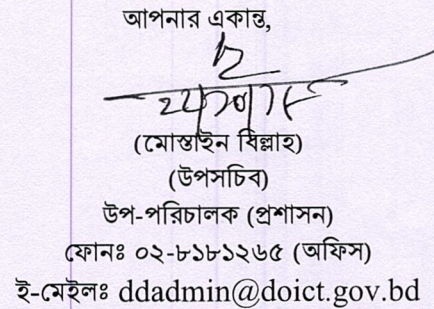 আপনার একান্ত,
(মোস্তাইন বিল্লাহ)
(উপসচিব)
উপ-পরিচালক (প্রশাসন)
ফোনঃ ০২-৮১৮১২৬৫ (অফিস)
ই-মেইলঃ ddadmin@doict.gov.bd